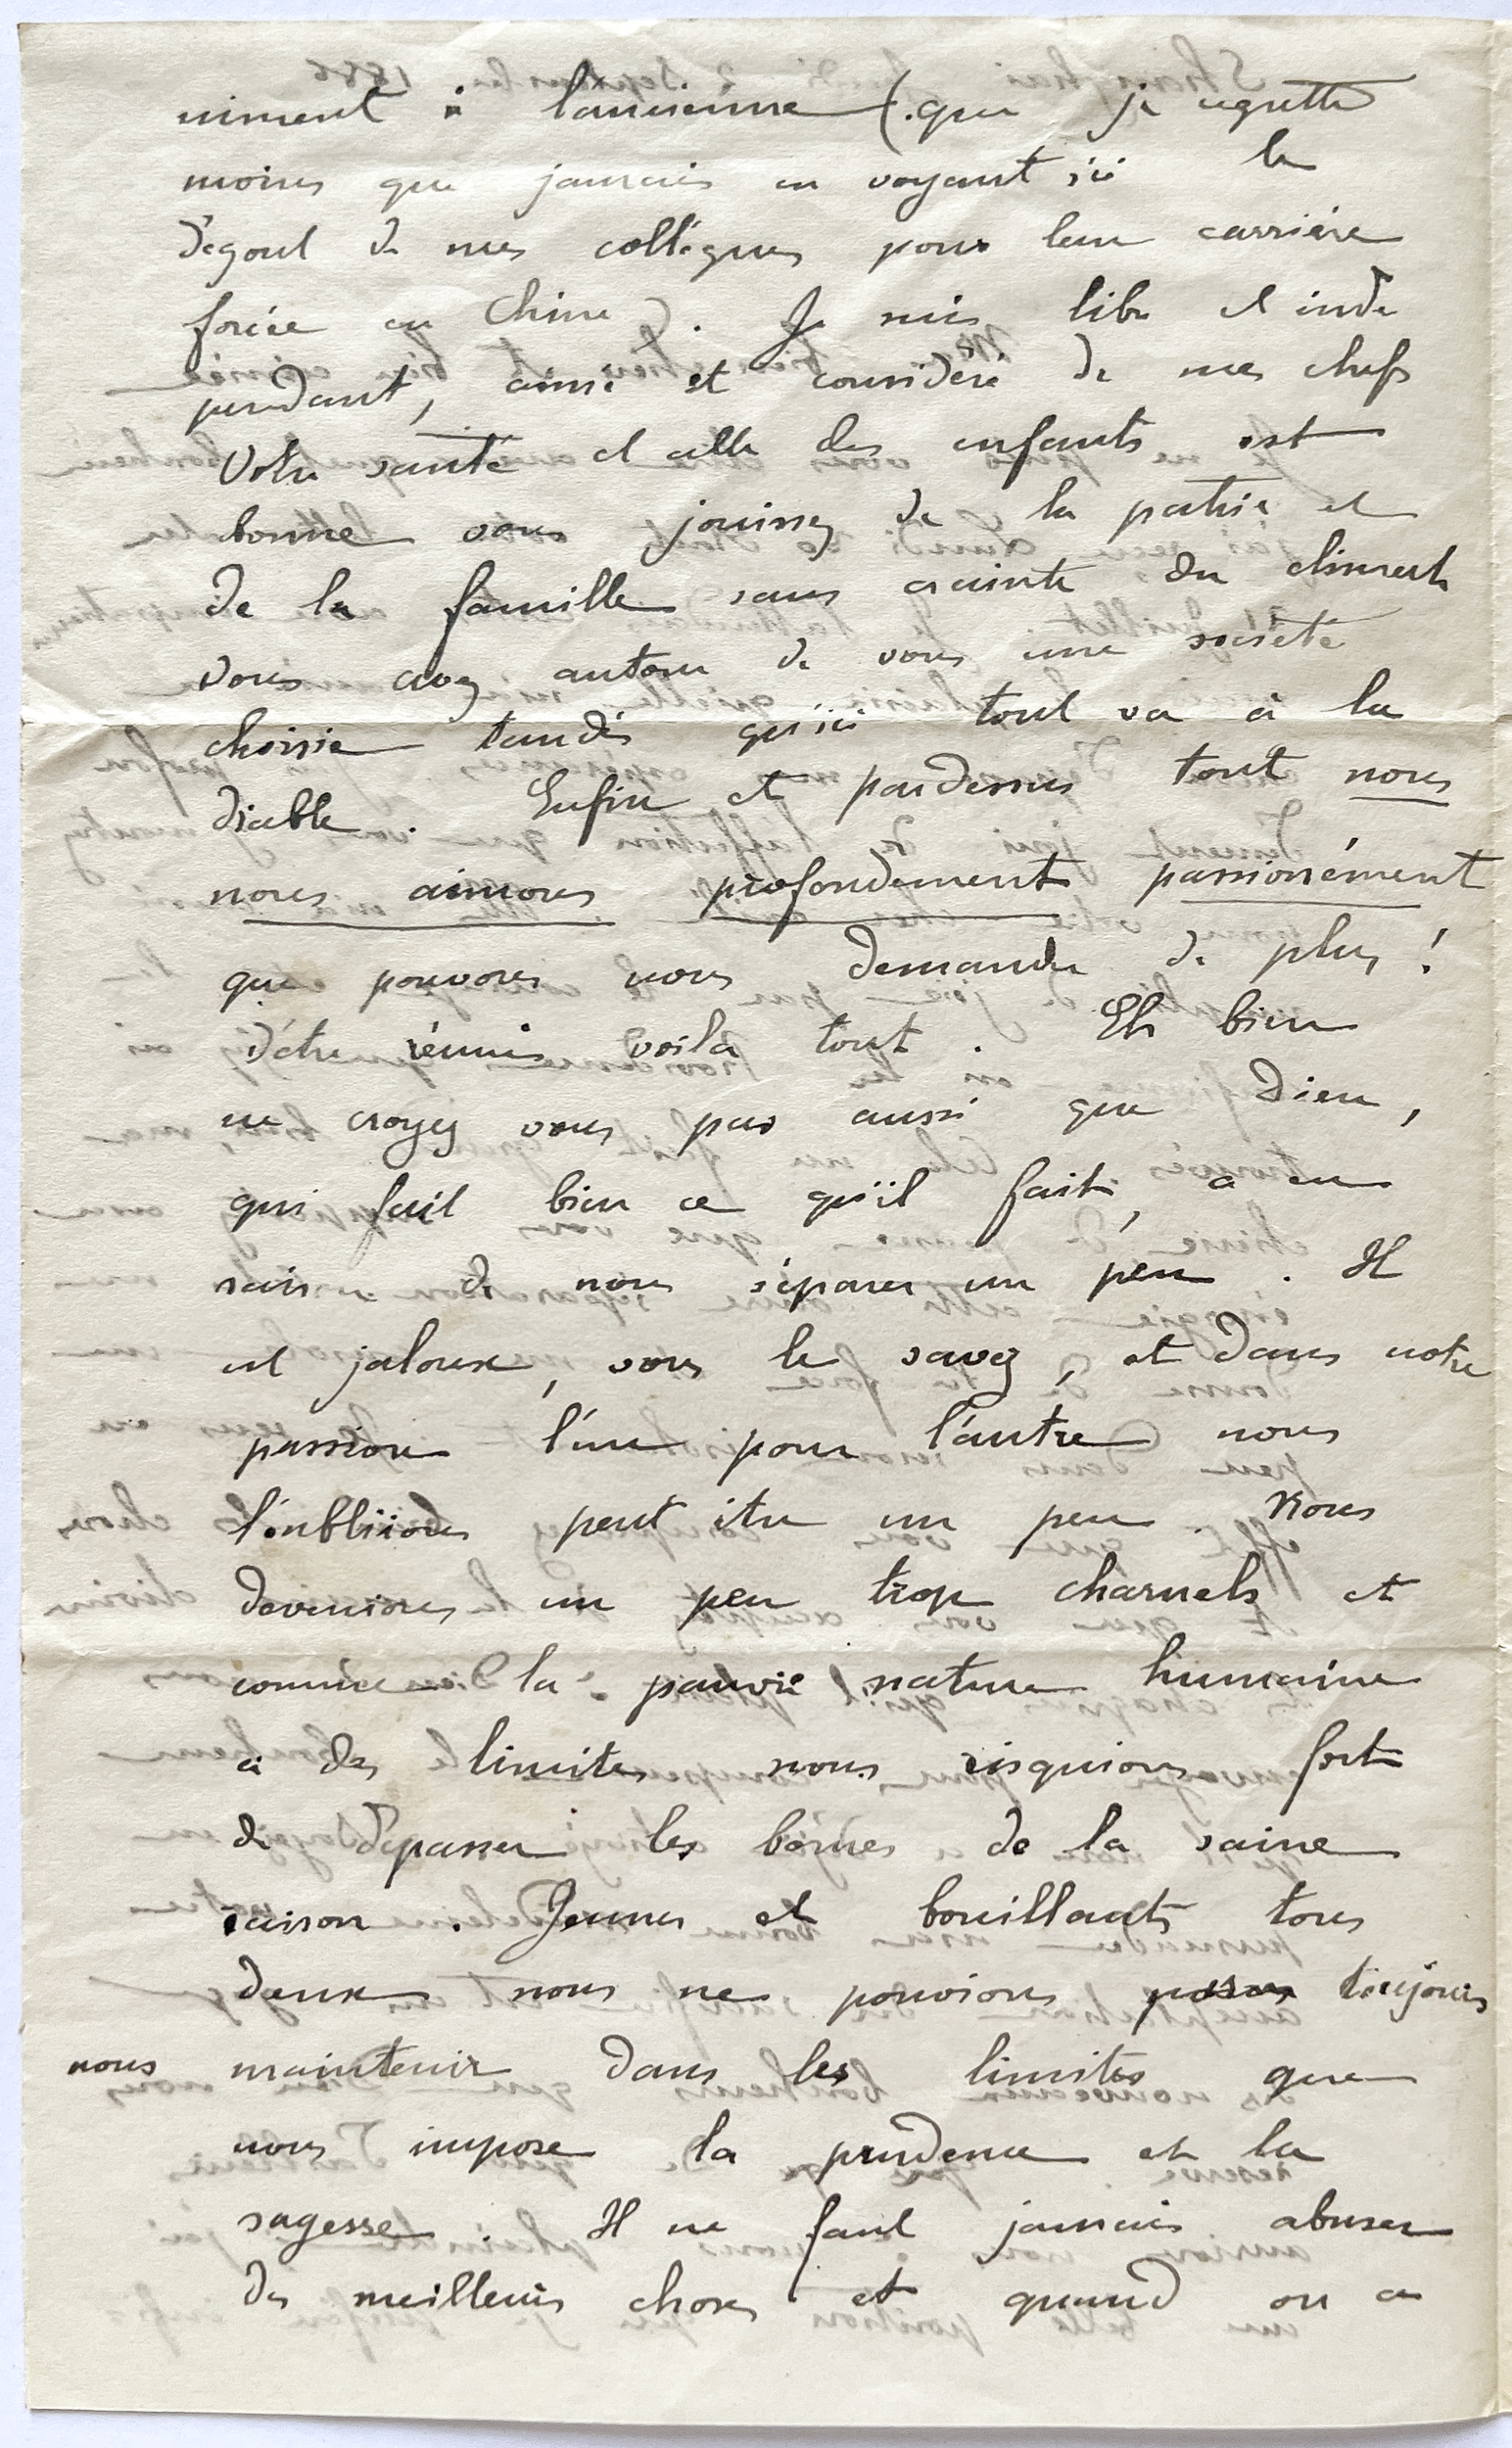 niment à l'ancienne (que je regrette
moins que jamais en voyant ici le
dégout de mes collègues pour leur carrière
forcée en Chine). Je suis libre et indé
pendant, aimé et considéré de mes chefs
Votre santé et celle des enfants est
bonne vous jouissez de la patrie et
de la famille sans crainte du climat
vous avez autour de vous une société
choisie tandis qu'ici tout va à la
diable. Enfin et pardessus tout nous
nous aimons profondement passionément
que pouvons nous demander de plus !
d'être réunis voila tout. Eh bien
ne croyez vous pas aussi que Dieu,
qui fait bien ce qu'il fait, a eu
raison de nous séparer un peu. Il
est jaloux, vous le savez, et dans notre
passion l'un pour l'autre nous
l'oubliions peut être un peu. Nous
devenions un peu trop charnels et
comme la pauvre nature humaine
a des limites nous risquions fort
de dépasser les bornes de la saine
raison. Jeunes et bouillants tous
deux nous ne pouvions toujours
nous maintenir dans les limites que
nous impose la prudence et la
sagesse. Il ne faut jamais abuser
des meilleures choses et quand on a